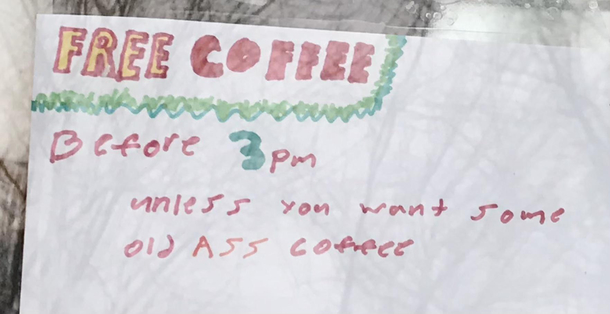 FREE COFFEE
Before 3pm
unless you want some
old ASS coffee